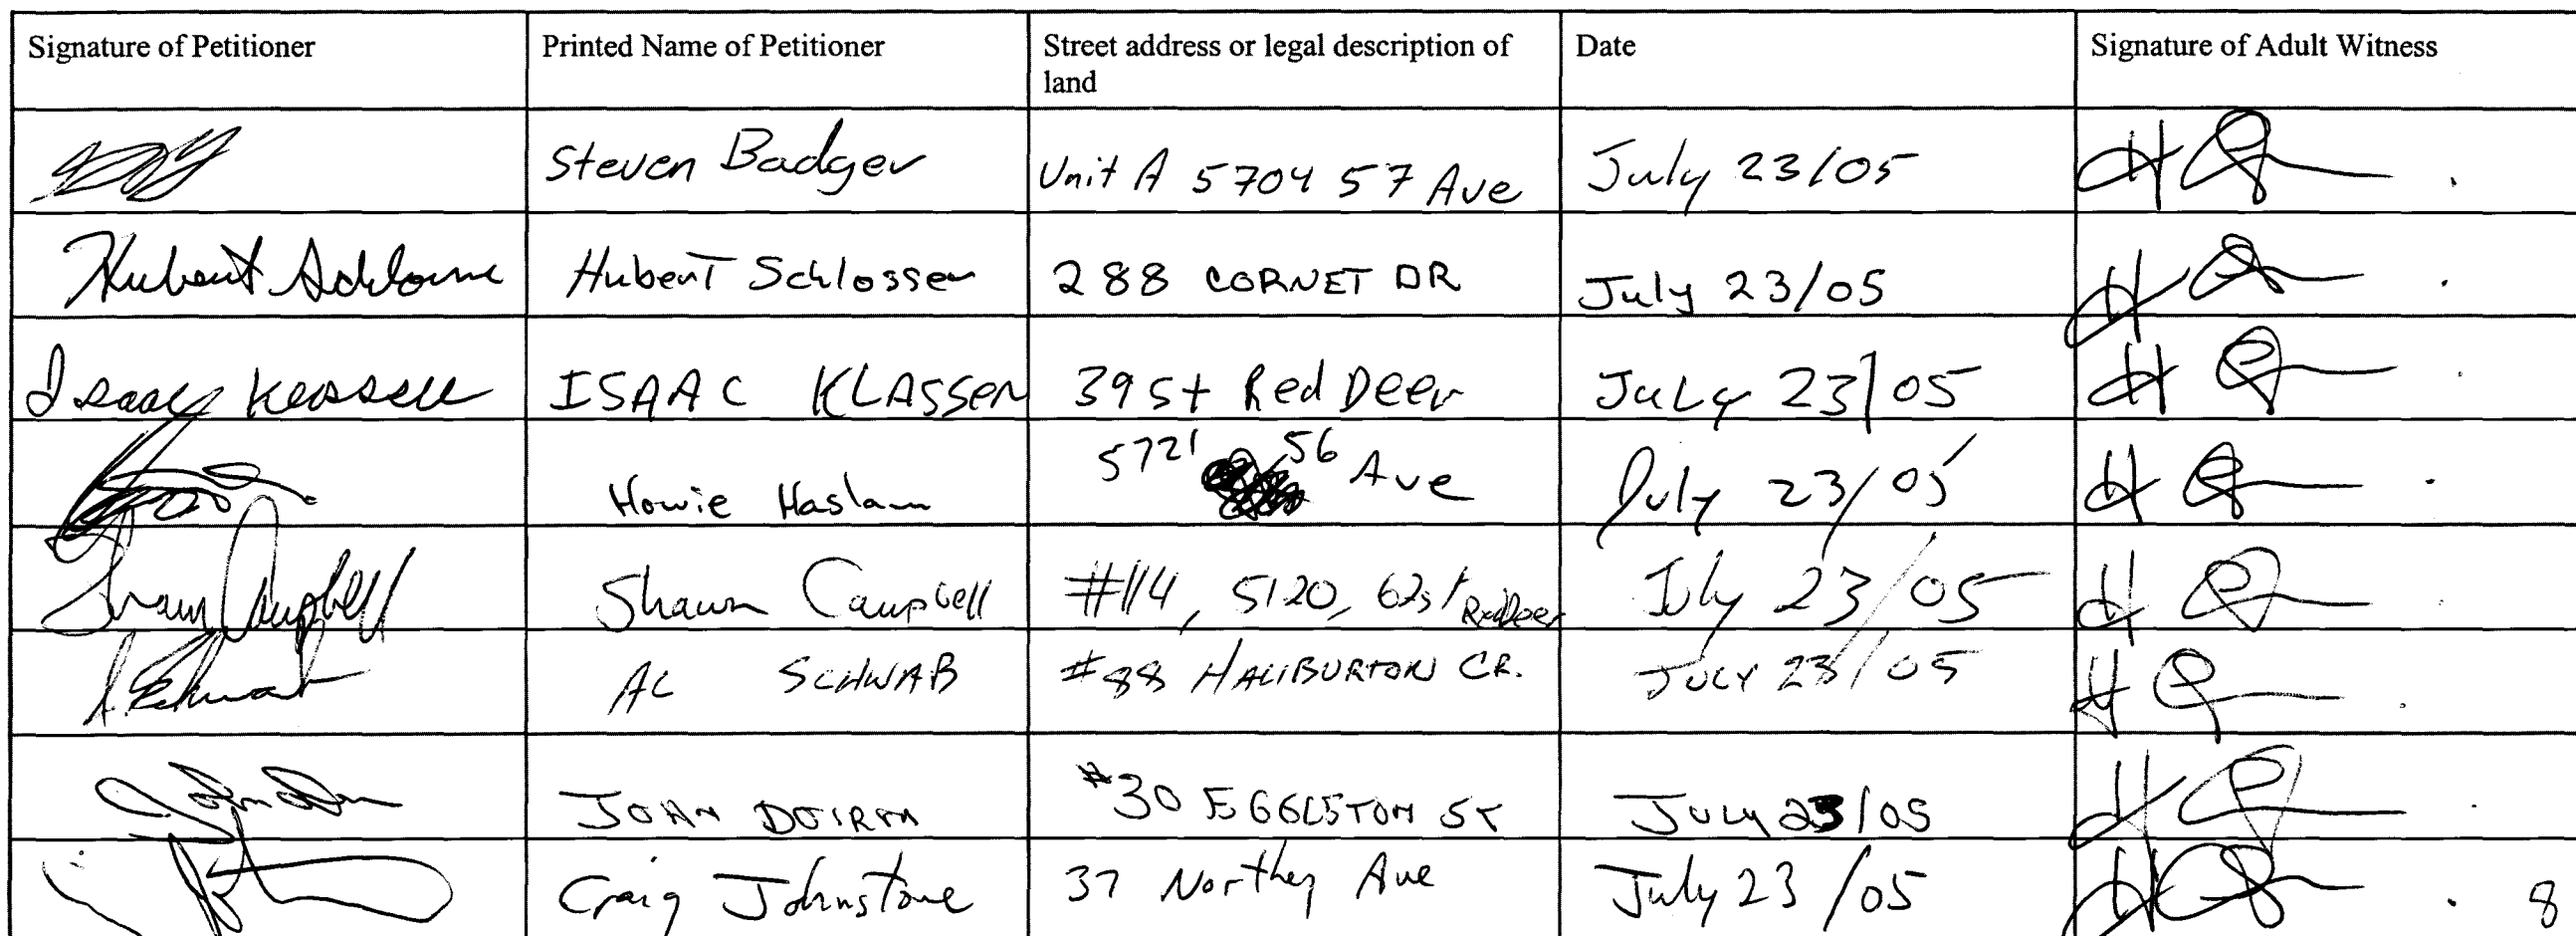 Signature of Petitioner Printed Name of Petitioner Street address or legal description of land Date Signature of Adult Witness
Steven Badger Unit A 5704 57 Ave July 23/05
Hubert Schlosser Hubert Schlosser 288 CORNET DR July 23/05
Isaac Klassen ISAAC KLASSEN 39 St Red Deer July 23/05
Howie Haslam 5721 56 Ave July 23/05
Shawn Campbell Shawn Campbell #114, 5120, 62st Red Deer July 23/05
A. Schwab AL SCHWAB #88 HALIBURTON CR. JULY 23/05
JOHN #30 EGGLESTON ST July 23/05
Craig Johnstone 37 Northey Ave July 23/05
8